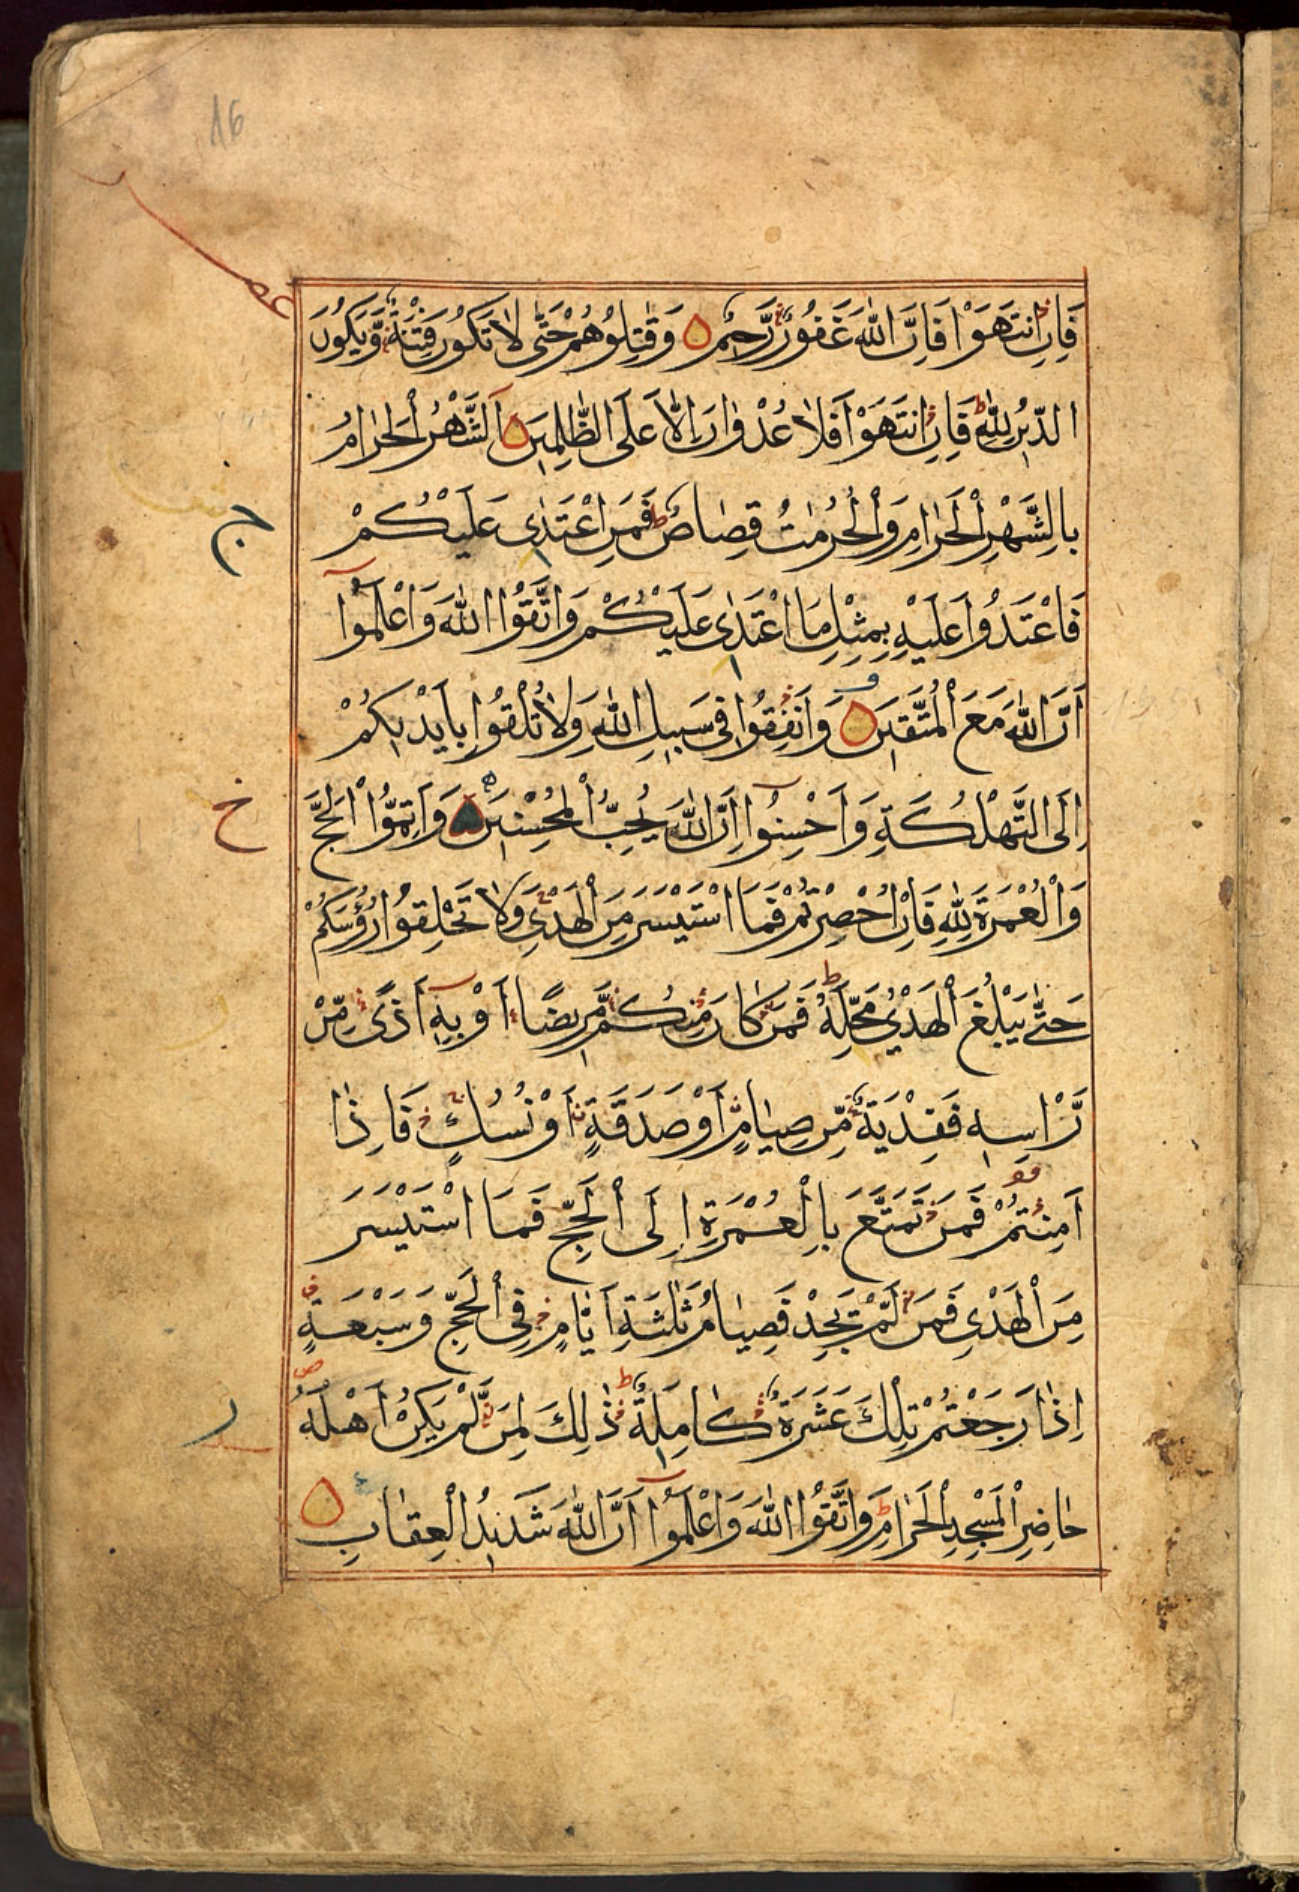 16
فَاِنِ انْتَهَوْا فَاِنَّ اللّٰهَ غَفُوْرٌ رَّحِيْمٌ وَقٰتِلُوْهُمْ حَتّٰى لَا تَكُوْنَ فِتْنَةٌ وَّيَكُوْنَ
الدِّيْنُ لِلّٰهِ ط فَاِنِ انْتَهَوْا فَلَا عُدْوَانَ اِلَّا عَلَى الظّٰلِمِيْنَ اَلشَّهْرُ الْحَرَامُ
بِالشَّهْرِ الْحَرَامِ وَالْحُرُمٰتُ قِصَاصٌ ط فَمَنِ اعْتَدٰى عَلَيْكُمْ
فَاعْتَدُوْا عَلَيْهِ بِمِثْلِ مَا اعْتَدٰى عَلَيْكُمْ وَاتَّقُوا اللّٰهَ وَاعْلَمُوْٓا
اَنَّ اللّٰهَ مَعَ الْمُتَّقِيْنَ وَاَنْفِقُوْا فِيْ سَبِيْلِ اللّٰهِ وَلَا تُلْقُوْا بِاَيْدِيْكُمْ
اِلَى التَّهْلُكَةِ وَاَحْسِنُوْٓا اِنَّ اللّٰهَ يُحِبُّ الْمُحْسِنِيْنَ وَاَتِمُّوا الْحَجَّ
وَالْعُمْرَةَ لِلّٰهِ فَاِنْ اُحْصِرْتُمْ فَمَا اسْتَيْسَرَ مِنَ الْهَدْيِ وَلَا تَحْلِقُوْا رُؤُسَكُمْ
حَتّٰى يَبْلُغَ الْهَدْيُ مَحِلَّهٗ ط فَمَنْ كَانَ مِنْكُمْ مَّرِيْضًا اَوْ بِهٖٓ اَذًى مِّنْ
رَّاْسِهٖ فَفِدْيَةٌ مِّنْ صِيَامٍ اَوْ صَدَقَةٍ اَوْ نُسُكٍ فَاِذَا
اَمِنْتُمْ فَمَنْ تَمَتَّعَ بِالْعُمْرَةِ اِلَى الْحَجِّ فَمَا اسْتَيْسَرَ
مِنَ الْهَدْيِ فَمَنْ لَّمْ يَجِدْ فَصِيَامُ ثَلٰثَةِ اَيَّامٍ فِي الْحَجِّ وَسَبْعَةٍ
اِذَا رَجَعْتُمْ تِلْكَ عَشَرَةٌ كَامِلَةٌ ط ذٰلِكَ لِمَنْ لَّمْ يَكُنْ اَهْلُهٗ
حَاضِرِي الْمَسْجِدِ الْحَرَامِ ط وَاتَّقُوا اللّٰهَ وَاعْلَمُوْٓا اَنَّ اللّٰهَ شَدِيْدُ الْعِقَابِ
ج
خ
ر